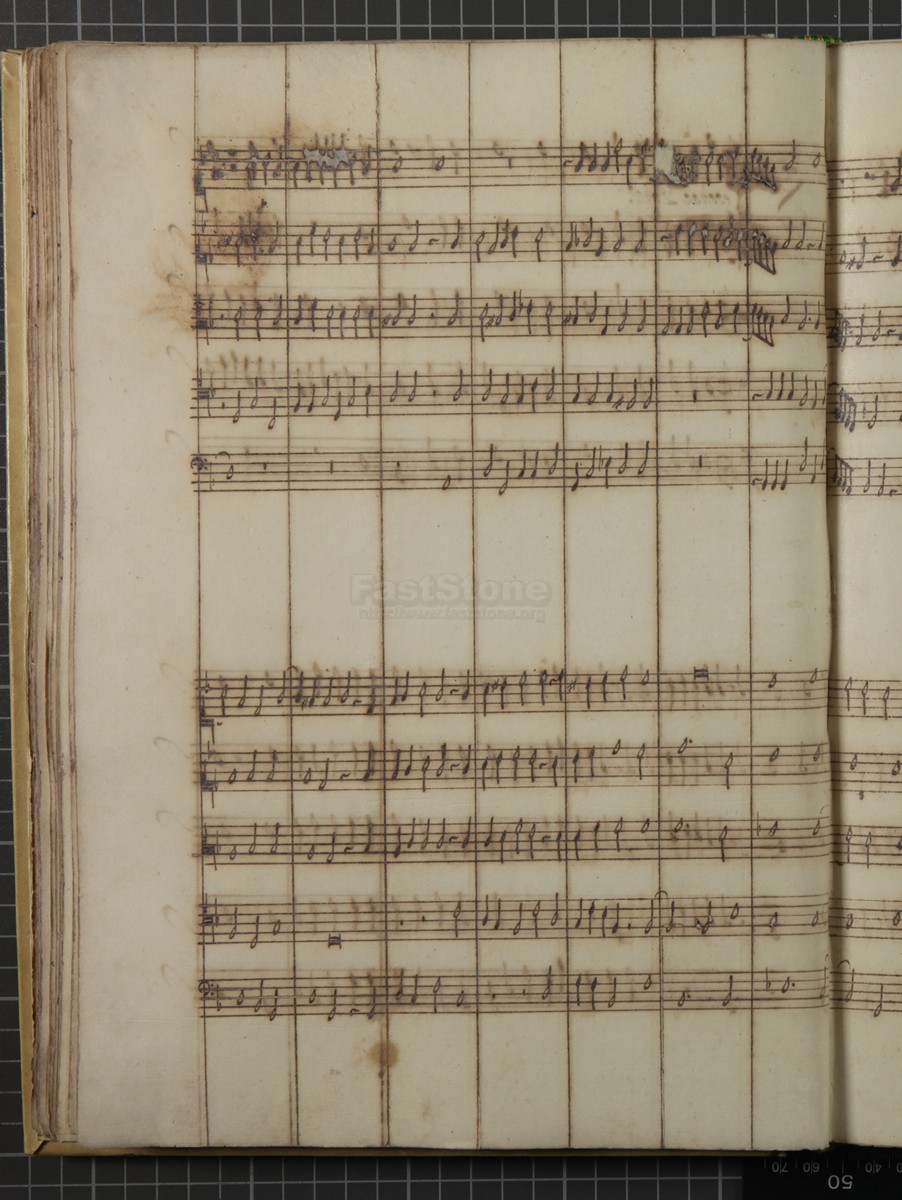 FastStone
http://www.faststone.org
70 60 50 40